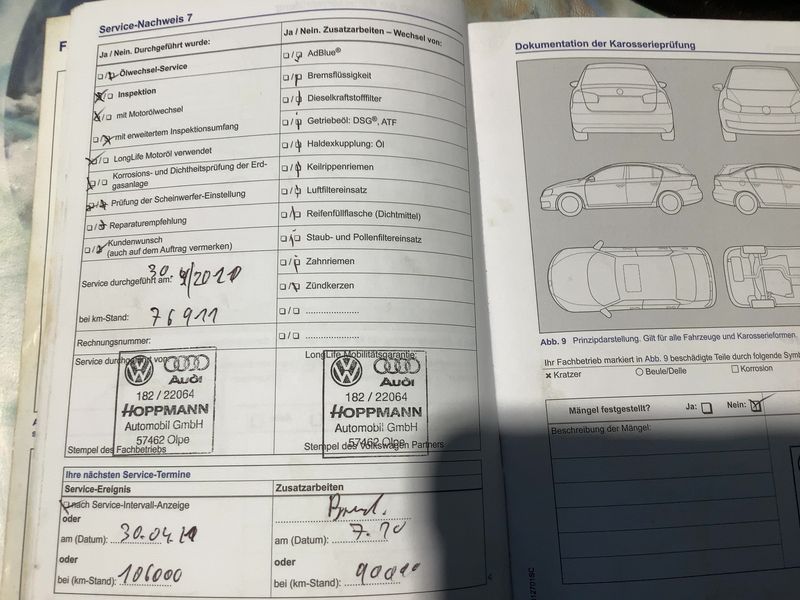 Service-Nachweis 7
Ja / Nein. Durchgeführt wurde:
Ölwechsel-Service
Inspektion
mit Motorölwechsel
mit erweitertem Inspektionsumfang
LongLife Motoröl verwendet
Korrosions- und Dichtheitsprüfung der Erd-
gasanlage
Prüfung der Scheinwerfer-Einstellung
Reparaturempfehlung
Kundenwunsch
(auch auf dem Auftrag vermerken)
Service durchgeführt am:
bei km-Stand: 76911
Rechnungsnummer:
Service durchgeführt von:
Audi
182 / 22064
HOPPMANN
Automobil GmbH
57462 Olpe
Stempel des Fachbetriebs
Ja / Nein. Zusatzarbeiten – Wechsel von:
AdBlue®
Bremsflüssigkeit
Dieselkraftstofffilter
Getriebeöl: DSG®, ATF
Haldexkupplung: Öl
Keilrippenriemen
Luftfiltereinsatz
Reifenfüllflasche (Dichtmittel)
Staub- und Pollenfiltereinsatz
Zahnriemen
Zündkerzen
LongLife Mobilitätsgarantie:
Audi
182 / 22064
HOPPMANN
Automobil GmbH
57462 Olpe
Stempel des Volkswagen Partners
Ihre nächsten Service-Termine
Service-Ereignis
nach Service-Intervall-Anzeige
oder
am (Datum):
oder
bei (km-Stand): 106000
Zusatzarbeiten
am (Datum):
oder
bei (km-Stand): 90000
Dokumentation der Karosserieprüfung
Abb. 9 Prinzipdarstellung. Gilt für alle Fahrzeuge und Karosserieformen.
Ihr Fachbetrieb markiert in Abb. 9 beschädigte Teile durch folgende
x Kratzer
Beule/Delle
Korrosion
Mängel festgestellt? Ja: Nein:
Beschreibung der Mängel: